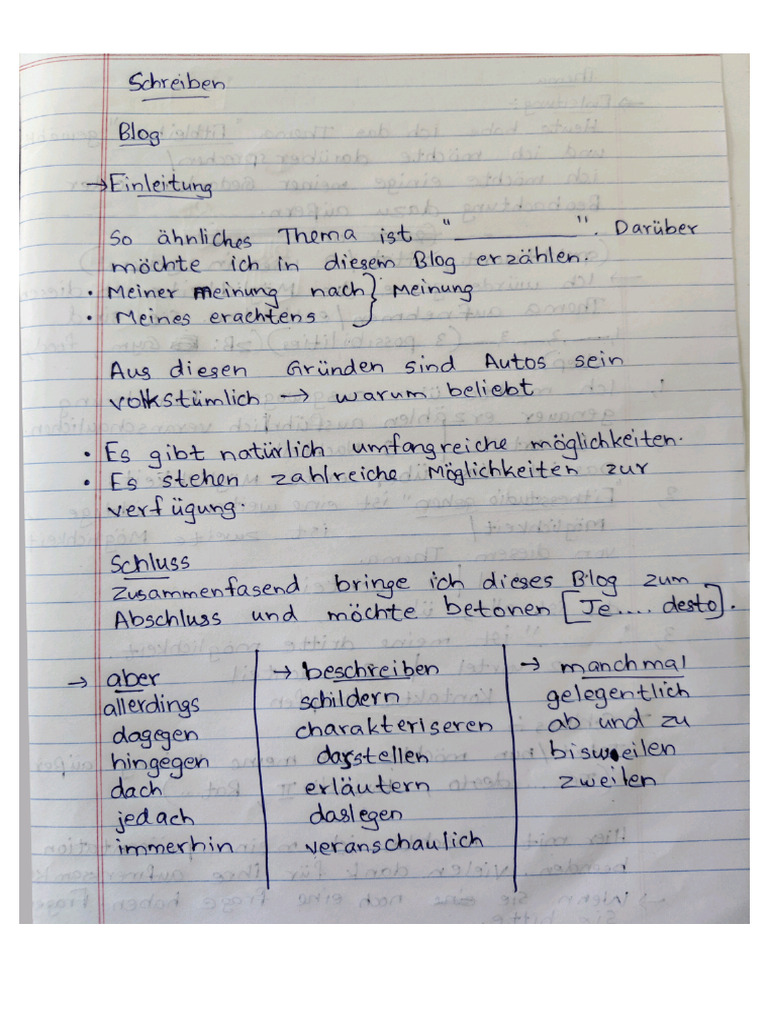 Schreiben
Blog
→ Einleitung
So ähnliches Thema ist "__________". Darüber
möchte ich in diesem Blog erzählen.
• Meiner meinung nach } Meinung
• Meines erachtens
Aus diesen Gründen sind Autos sein
volkstümlich → warum beliebt
• Es gibt natürlich umfangreiche möglichkeiten.
• Es stehen zahlreiche Möglichkeiten zur
verfügung.
Schluss
Zusammenfasend bringe ich dieses Blog zum
Abschluss und möchte betonen [Je.... desto].
→ aber
allerdings
dagegen
hingegen
dach
jedach
immerhin
→ beschreiben
schildern
charakteriseren
darstellen
erläutern
daslegen
veranschaulich
→ manchmal
gelegentlich
ab und zu
bisweilen
zweilen